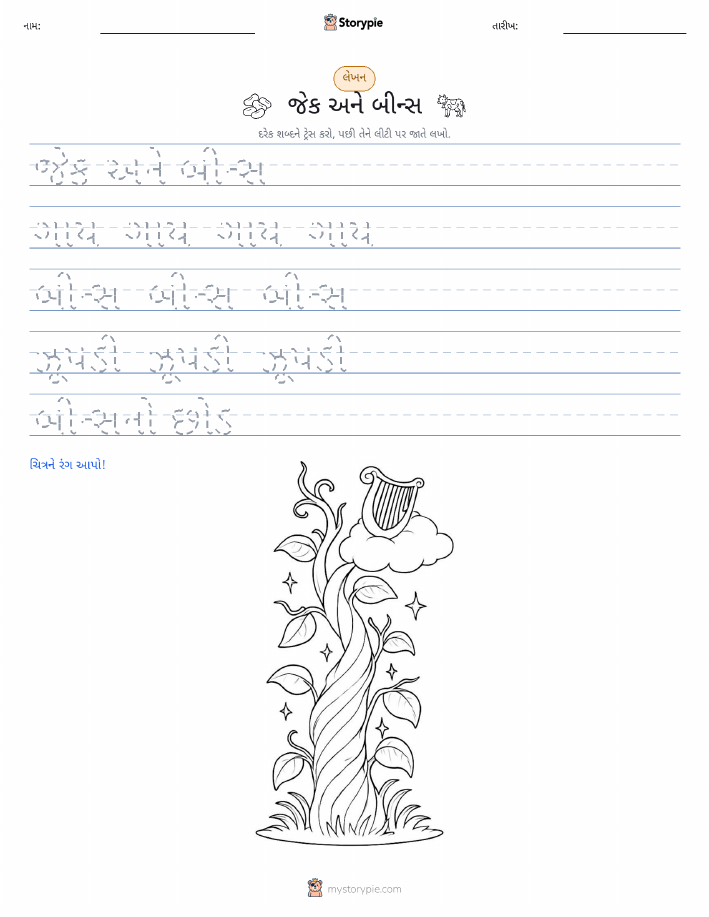 નામ:
Storypie
તારીખ:
લેખન
જેક અને બીન્સ
દરેક શબ્દને ટ્રેસ કરો, પછી તેને લીટી પર જાતે લખો.
જેક અને બીન્સ
ગાય ગાય ગાય ગાય
બીન્સ બીન્સ બીન્સ
ઝૂંપડી ઝૂંપડી ઝૂંપડી
બીન્સનો છોડ
ચિત્રને રંગ આપો!
mystorypie.com